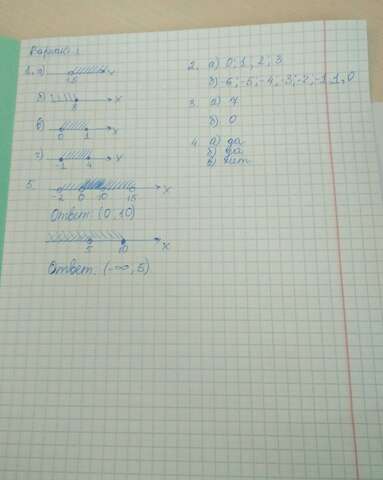 Вариант 1
1. а) x
б) 8 x
в) 0 1 x
г) -1 4 x
5. -2 0 10 15 x
Ответ: (0, 10)
5 10 x
Ответ: (-∞, 5)
2. а) 0; 1; 2; 3
б) -6; -5; -4, -3; -2, -1, 1, 0
3. а) 7
б) 0
4. а) да
б) да
в) нет